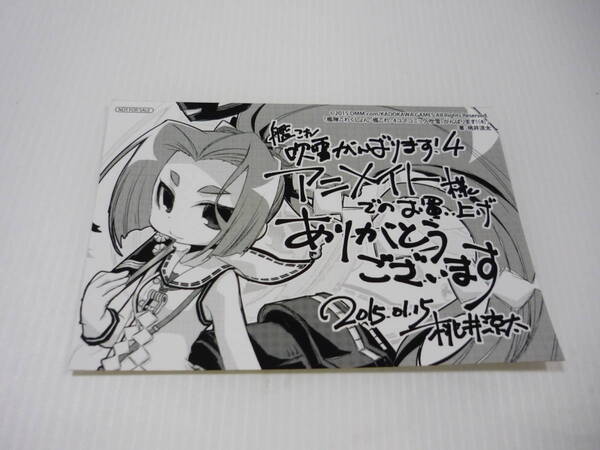 NOT FOR SALE
©2015 DMM.com/KADOKAWA GAMES All Rights Reserved.
「艦隊これくしょん -艦これ- 4コマコミック 吹雪、がんばります!」4
著 桃井涼太
艦これ
吹雪がんばります!4
アニメイト様
でのお買い上げ
ありがとう
ございます
2015.01.15
桃井涼太